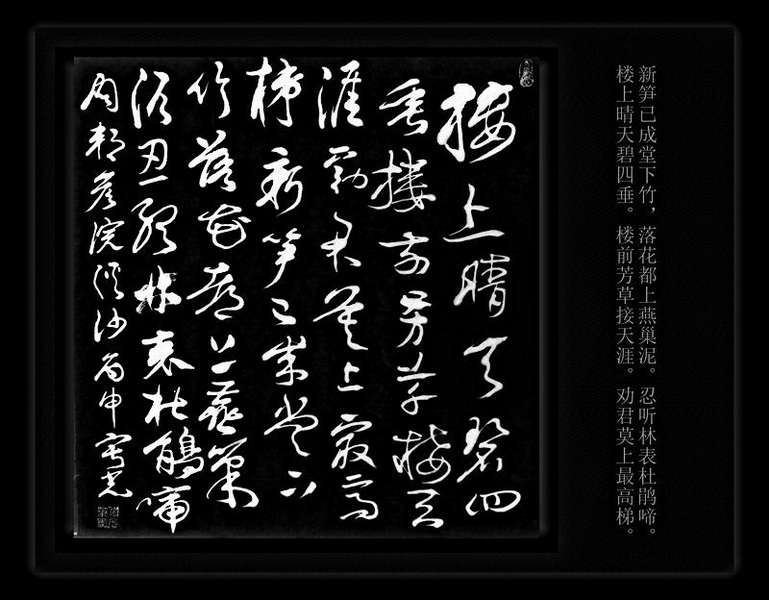 楼上晴天碧四
垂楼前芳草接天
涯劝君莫上最高
梯新笋已成堂下
竹落花都上燕巢
泥忍听林表杜鹃啼
周邦彦浣溪沙丙申
楼上晴天碧四垂。楼前芳草接天涯。劝君莫上最高梯。
新笋已成堂下竹，落花都上燕巢泥。忍听林表杜鹃啼。